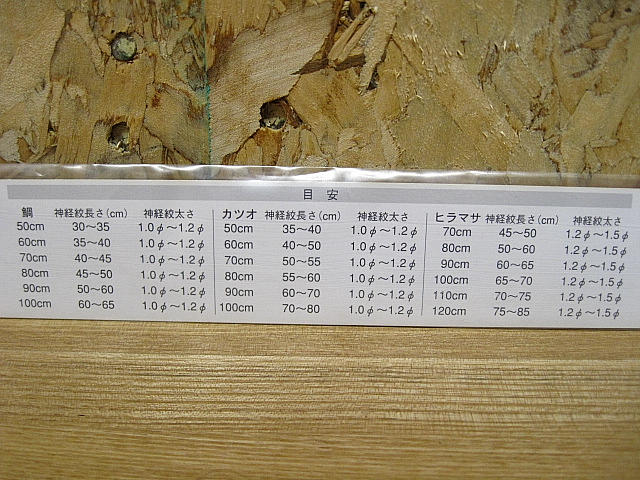 目安
鯛 神経絞長さ(cm) 神経絞太さ カツオ 神経絞長さ(cm) 神経絞太さ ヒラマサ 神経絞長さ(cm) 神経絞太さ
50cm 30〜35 1.0φ〜1.2φ 50cm 35〜40 1.0φ〜1.2φ 70cm 45〜50 1.2φ〜1.5φ
60cm 35〜40 1.0φ〜1.2φ 60cm 40〜50 1.0φ〜1.2φ 80cm 50〜60 1.2φ〜1.5φ
70cm 40〜45 1.0φ〜1.2φ 70cm 50〜55 1.0φ〜1.2φ 90cm 60〜65 1.2φ〜1.5φ
80cm 45〜50 1.0φ〜1.2φ 80cm 55〜60 1.0φ〜1.2φ 100cm 65〜70 1.2φ〜1.5φ
90cm 50〜60 1.0φ〜1.2φ 90cm 60〜70 1.0φ〜1.2φ 110cm 70〜75 1.2φ〜1.5φ
100cm 60〜65 1.0φ〜1.2φ 100cm 70〜80 1.0φ〜1.2φ 120cm 75〜85 1.2φ〜1.5φ